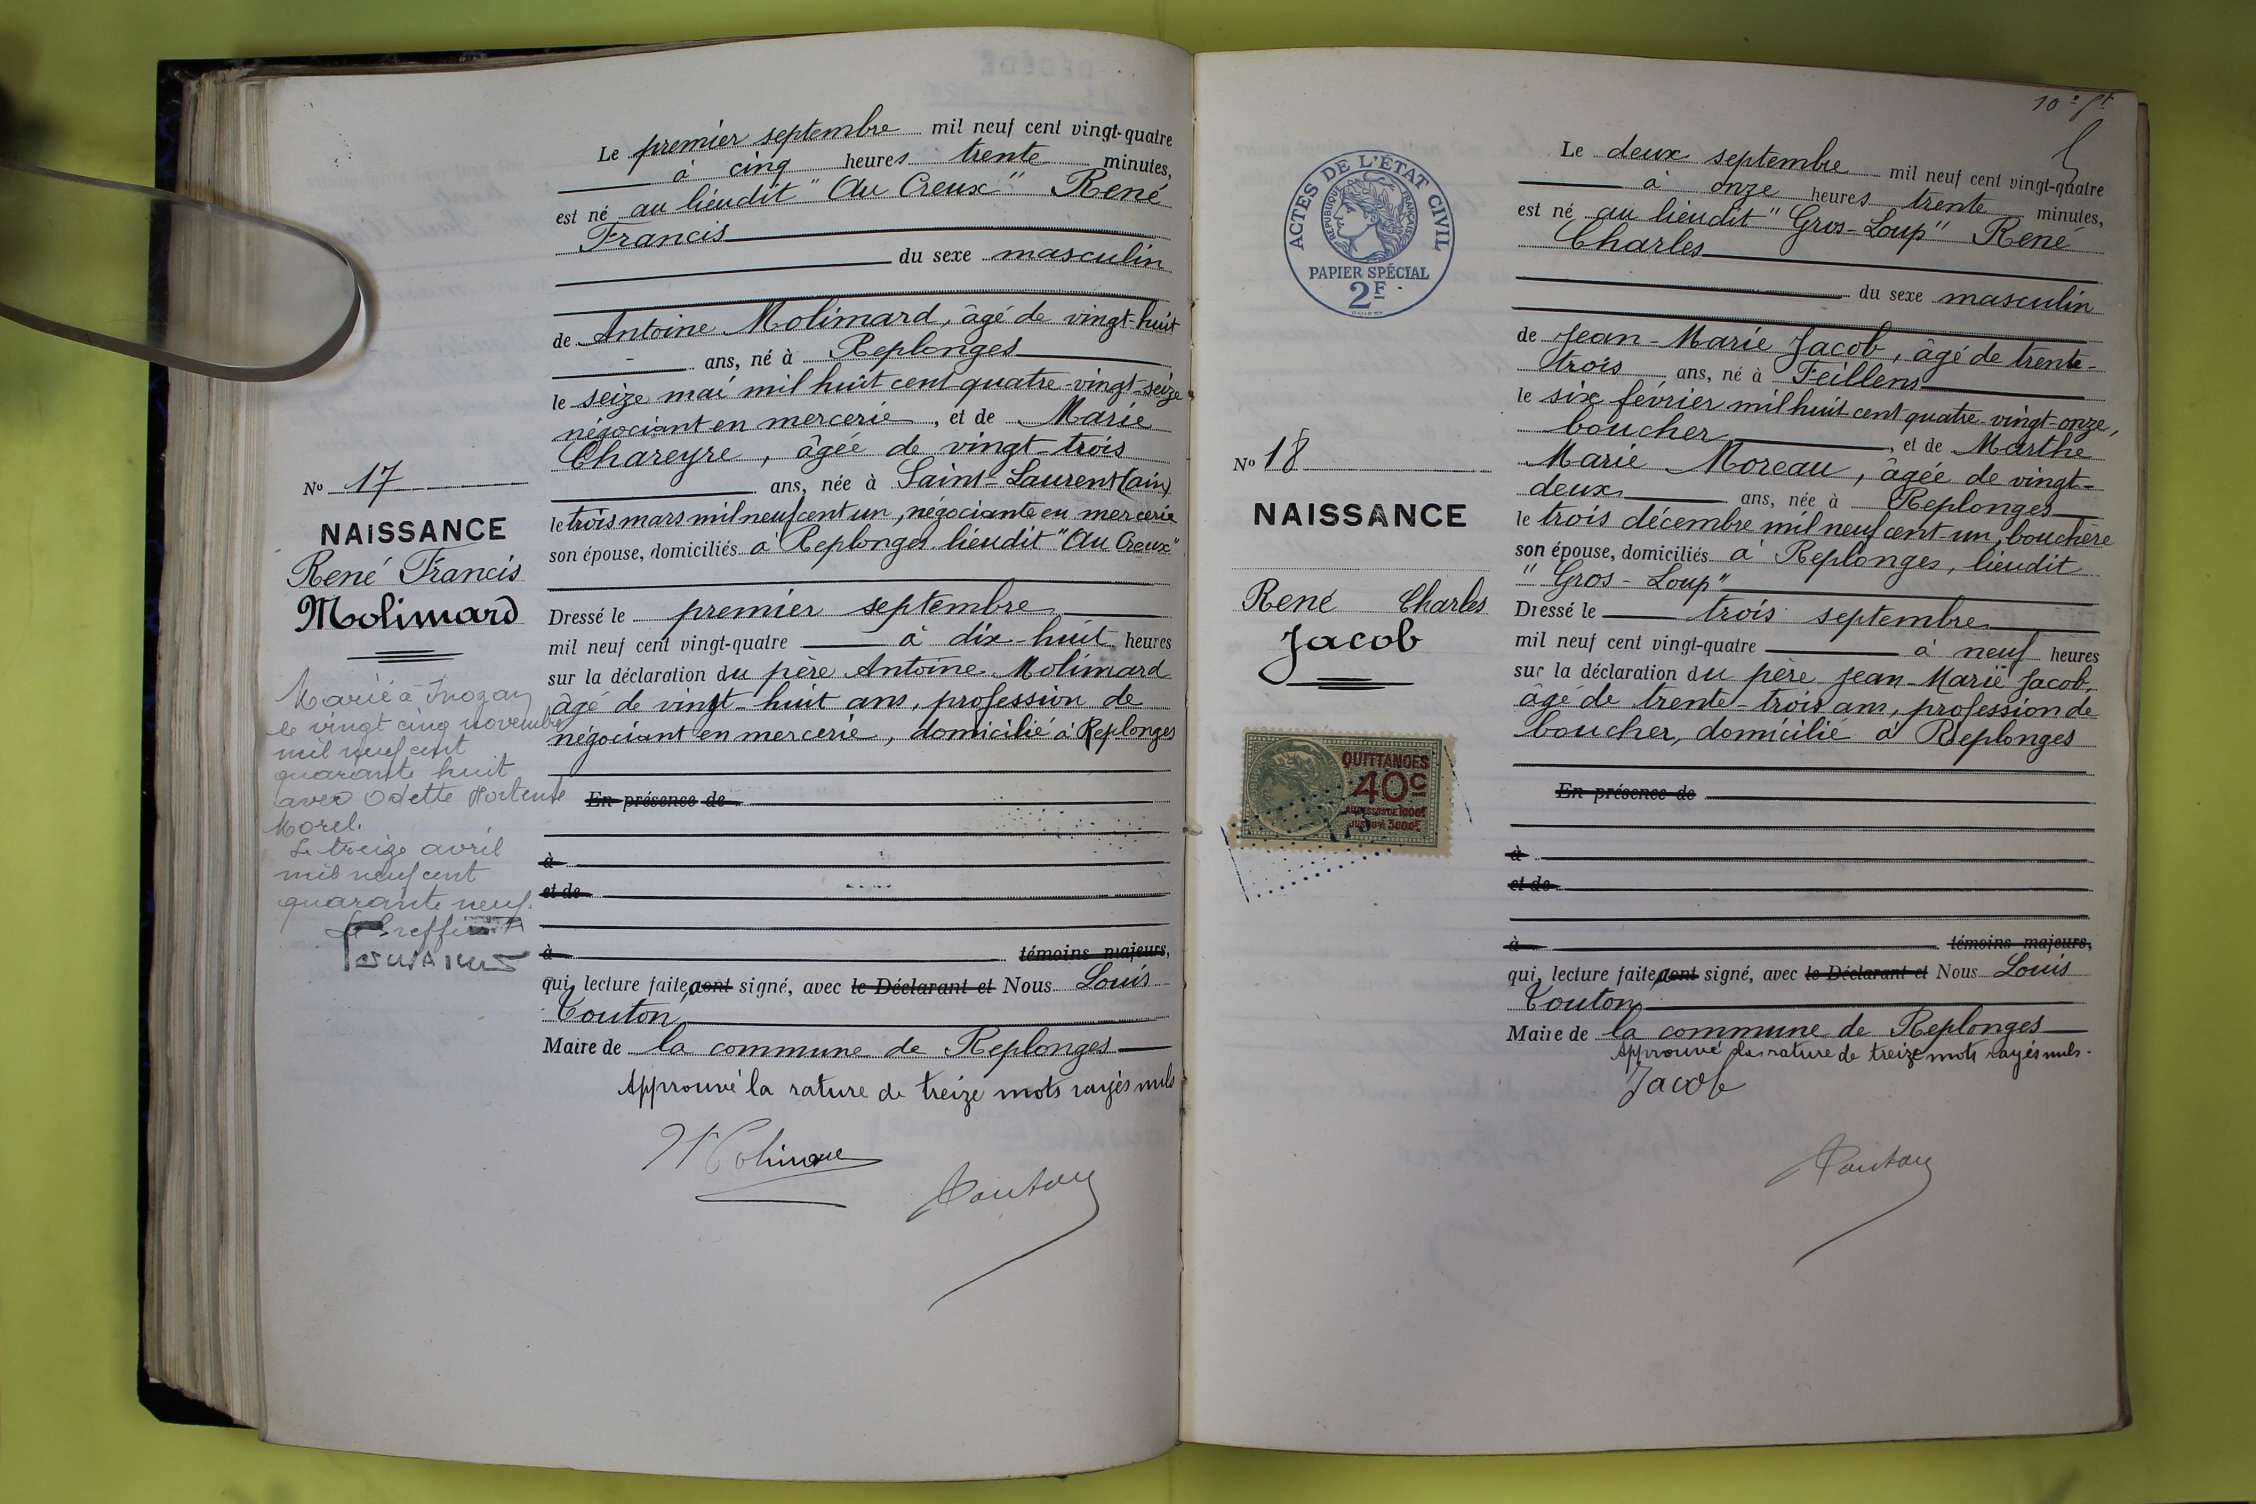 Le premier septembre mil neuf cent vingt-quatre
à cinq heures trente minutes,
est né au lieudit "Au Creux" René
Francis
du sexe masculin
de Antoine Molimard, âgé de vingt-huit
ans, né à Replonges
le seize mai mil huit cent quatre-vingt-seize
négociant en mercerie, et de Marie
Chareyre, âgée de vingt-trois
ans, née à Saint-Laurent (Ain)
le trois mars mil neuf cent un, négociante en mercerie
son épouse, domiciliés à Replonges lieudit "Au Creux"
Dressé le premier septembre
mil neuf cent vingt-quatre à dix-huit heures
sur la déclaration du père Antoine Molimard
âgé de vingt-huit ans, profession de
négociant en mercerie, domicilié à Replonges
En présence de
à
et de
à témoins majeurs,
qui, lecture faite, ont signé, avec le Déclarant et Nous Louis
Touton
Maire de la commune de Replonges
Approuvé la rature de treize mots rayés nuls
Touton
No 17
NAISSANCE
René Francis
Molimard
Marié à
le vingt cinq novembre
mil neuf cent
quarante huit
avec Odette Hortense
Morel.
Le treize avril
mil neuf cent
quarante neuf.
Le Greffier
10e ft
ACTES DE L'ÉTAT CIVIL
RÉPUBLIQUE FRANÇAISE
PAPIER SPÉCIAL
2F
Le deux septembre mil neuf cent vingt-quatre
à onze heures trente minutes,
est né au lieudit "Gros-Loup" René
Charles
du sexe masculin
de Jean-Marie Jacob, âgé de trente-
trois ans, né à Feillens
le six février mil huit cent quatre-vingt-onze,
boucher, et de Marthe
Marie Moreau, âgée de vingt-
deux ans, née à Replonges
le trois décembre mil neuf cent-un, bouchère
son épouse, domiciliés à Replonges, lieudit
"Gros-Loup"
Dressé le trois septembre
mil neuf cent vingt-quatre à neuf heures
sur la déclaration du père Jean-Marie Jacob,
âgé de trente-trois ans, profession de
boucher, domicilié à Replonges
En présence de
à
et de
à témoins majeurs,
qui, lecture faite, ont signé, avec le Déclarant et Nous Louis
Touton
Maire de la commune de Replonges
Approuvé la rature de treize mots rayés nuls.
Jacob
Touton
No 18
NAISSANCE
René Charles
Jacob
QUITTANCES
40c
AU-DESSUS DE 1000F
JUSQU'À 3000F